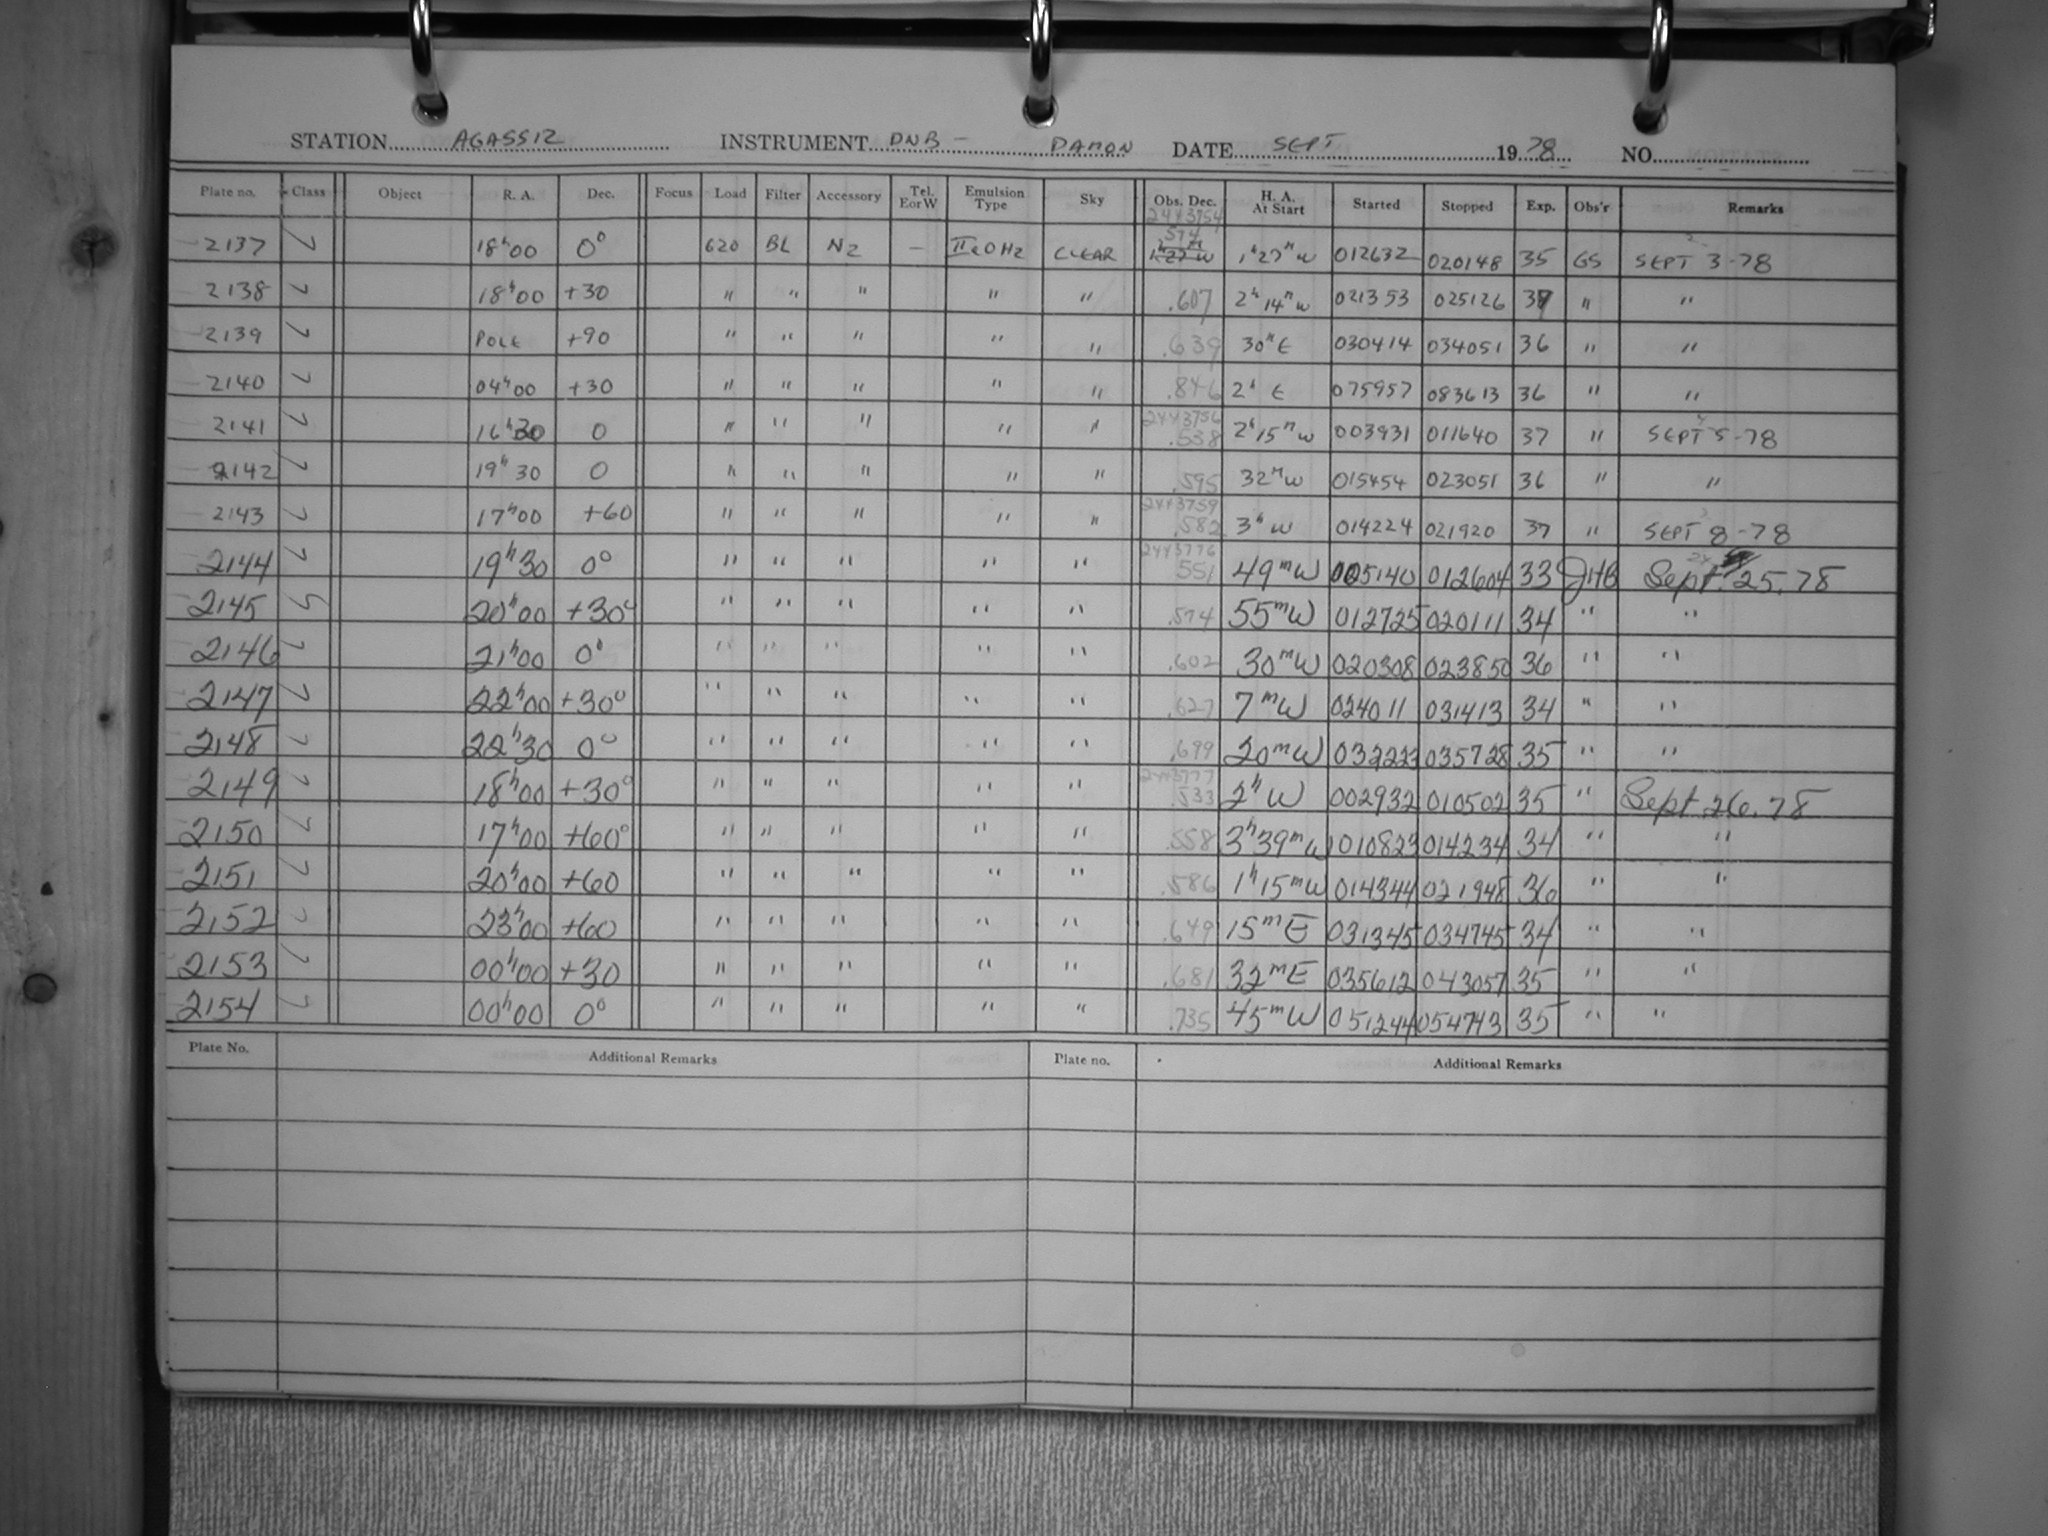 STATION AGASSIZ INSTRUMENT DNB - DAMON DATE SEPT 1978 NO.
Plate no. Class Object R. A. Dec. Focus Load Filter Accessory Tel. E or W Emulsion Type Sky Obs. Dec. H. A. At Start Started Stopped Exp. Obs'r Remarks
2443754
2137 18h00 0° 620 BL N2 — IIaO H2 CLEAR .574 1h27m W 012632 020148 35 GS SEPT 3-78
2138 18h00 +30 " " " " " .607 2h14m W 021353 025126 37 " "
2139 POLE +90 " " " " " .639 30m E 030414 034051 36 " "
2140 04h00 +30 " " " " " .846 2h E 075957 083613 36 " "
2141 16h30 0 " " " " " 2443756 .538 2h15m W 003931 011640 37 " SEPT 5-78
2142 19h30 0 " " " " " .595 32m W 015454 023051 36 " "
2143 17h00 +60 " " " " " 2443759 .582 3h W 014224 021920 37 " SEPT 8-78
2144 19h30 0° " " " " " 2443776 .551 49m W 005140 012604 33 JHB Sept. 25, 78
2145 20h00 +30° " " " " " .574 55m W 012725 020111 34 " "
2146 21h00 0° " " " " " .602 30m W 020308 023850 36 " "
2147 22h00 +30° " " " " " .627 7m W 024011 031413 34 " "
2148 22h30 0° " " " " " .699 20m W 032223 035728 35 " "
2149 18h00 +30° " " " " " 2443777 .533 2h W 002932 010502 35 " Sept. 26, 78
2150 17h00 +60° " " " " " .558 3h39m W 010823 014234 34 " "
2151 20h00 +60 " " " " " .586 1h15m W 014344 021948 36 " "
2152 23h00 +60 " " " " " .649 15m E 031345 034745 34 " "
2153 00h00 +30 " " " " " .681 32m E 035612 043057 35 " "
2154 00h00 0° " " " " " .735 45m W 051244 054743 35 " "
Plate No. Additional Remarks Plate no. Additional Remarks